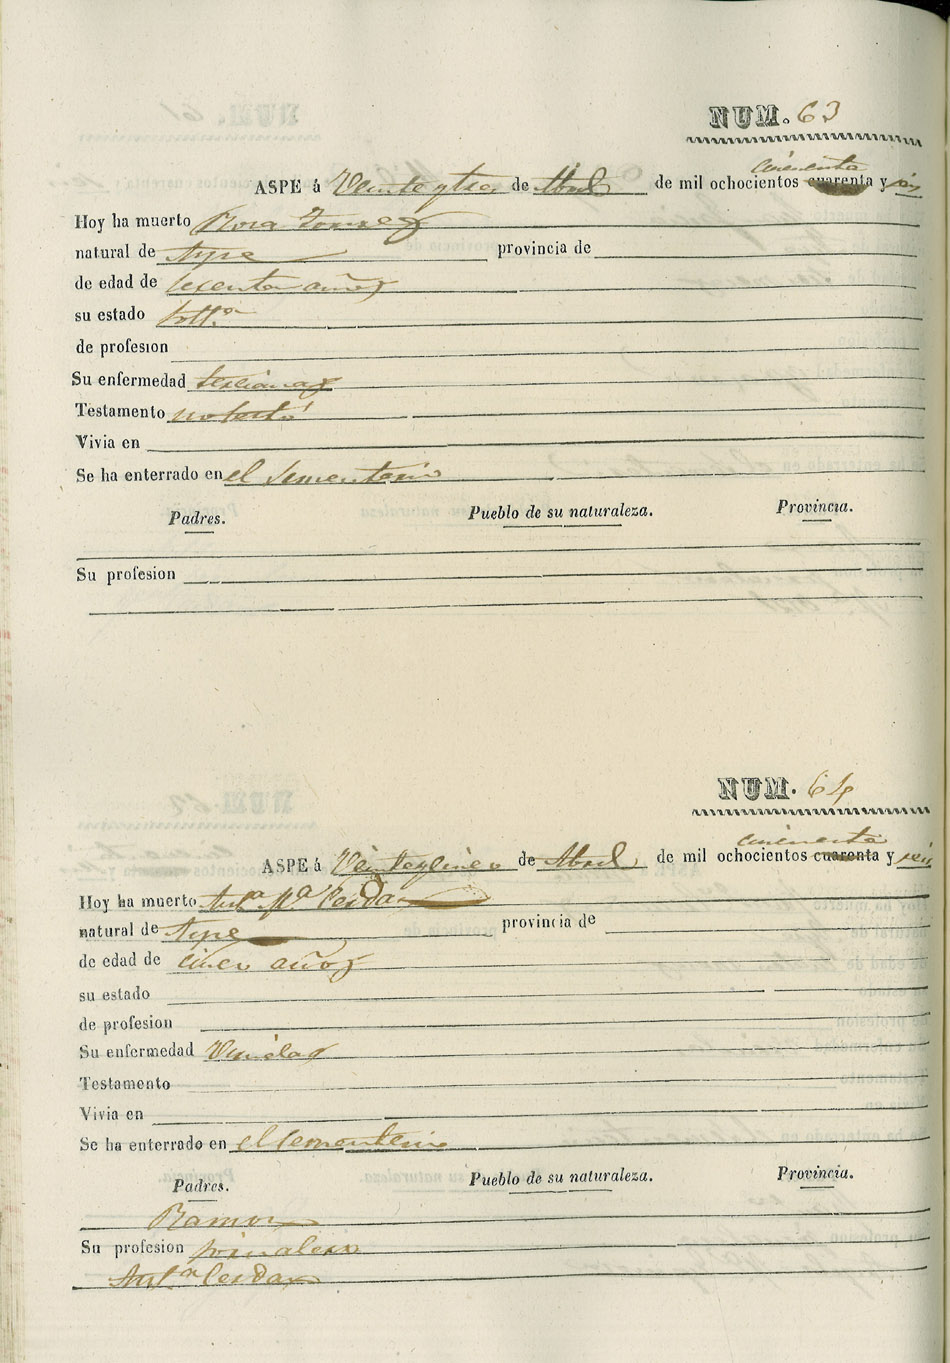 NUM. 63
cincuenta
ASPE á Veinte y tres de Abril de mil ochocientos cuarenta y seis
Hoy ha muerto Rosa
natural de Aspe provincia de
de edad de sesenta años
su estado Solt.ª
de profesion
Su enfermedad tercianas
Testamento no testó
Vivia en
Se ha enterrado en el Sementerio
Padres. Pueblo de su naturaleza. Provincia.
Su profesion
NUM. 64
cincuenta
ASPE á Veinte y cinco de Abril de mil ochocientos cuarenta y seis
Hoy ha muerto Ant.ª M.ª Cerdan
natural de Aspe provincia de
de edad de cinco años
su estado
de profesion
Su enfermedad Viruelas
Testamento
Vivia en
Se ha enterrado en el Sementerio
Padres. Pueblo de su naturaleza. Provincia.
Ramon
Su profesion jornalero
Ant.ª Cerdan